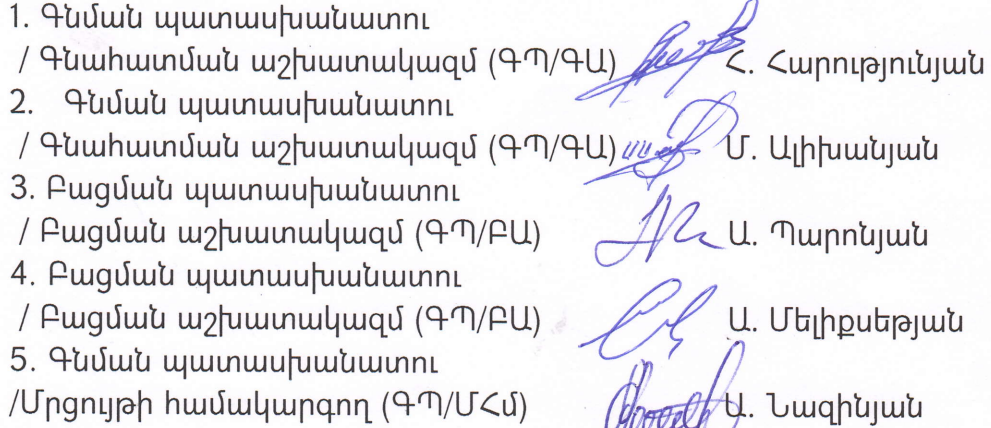 1. Գնման պատասխանատու
/ Գնահատման աշխատակազմ (ԳՊ/ԳԱ) Հ. Հարությունյան
2. Գնման պատասխանատու
/ Գնահատման աշխատակազմ (ԳՊ/ԳԱ) Մ. Ալիխանյան
3. Բացման պատասխանատու
/ Բացման աշխատակազմ (ԳՊ/ԲԱ) Ա. Պարոնյան
4. Բացման պատասխանատու
/ Բացման աշխատակազմ (ԳՊ/ԲԱ) Ա. Մելիքսեթյան
5. Գնման պատասխանատու
/Մրցույթի համակարգող (ԳՊ/ՄՀմ) Ա. Նազինյան